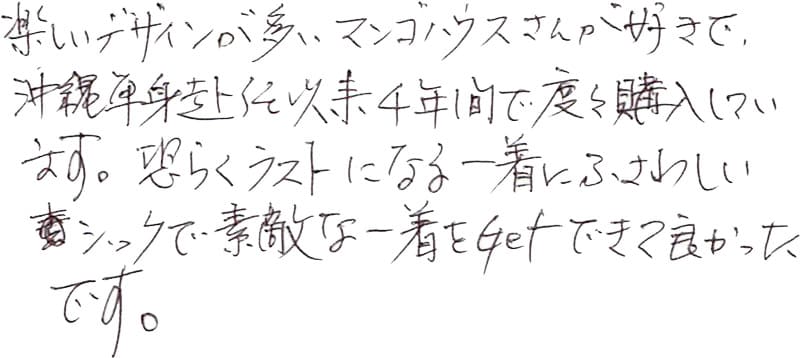 楽しいデザインが多いマンゴハウスさんが好きで、
沖縄単身赴任以来4年間で度々購入してい
ます。恐らくラストになる一着にふさわしい
シックで素敵な一着をgetできて良かった
です。